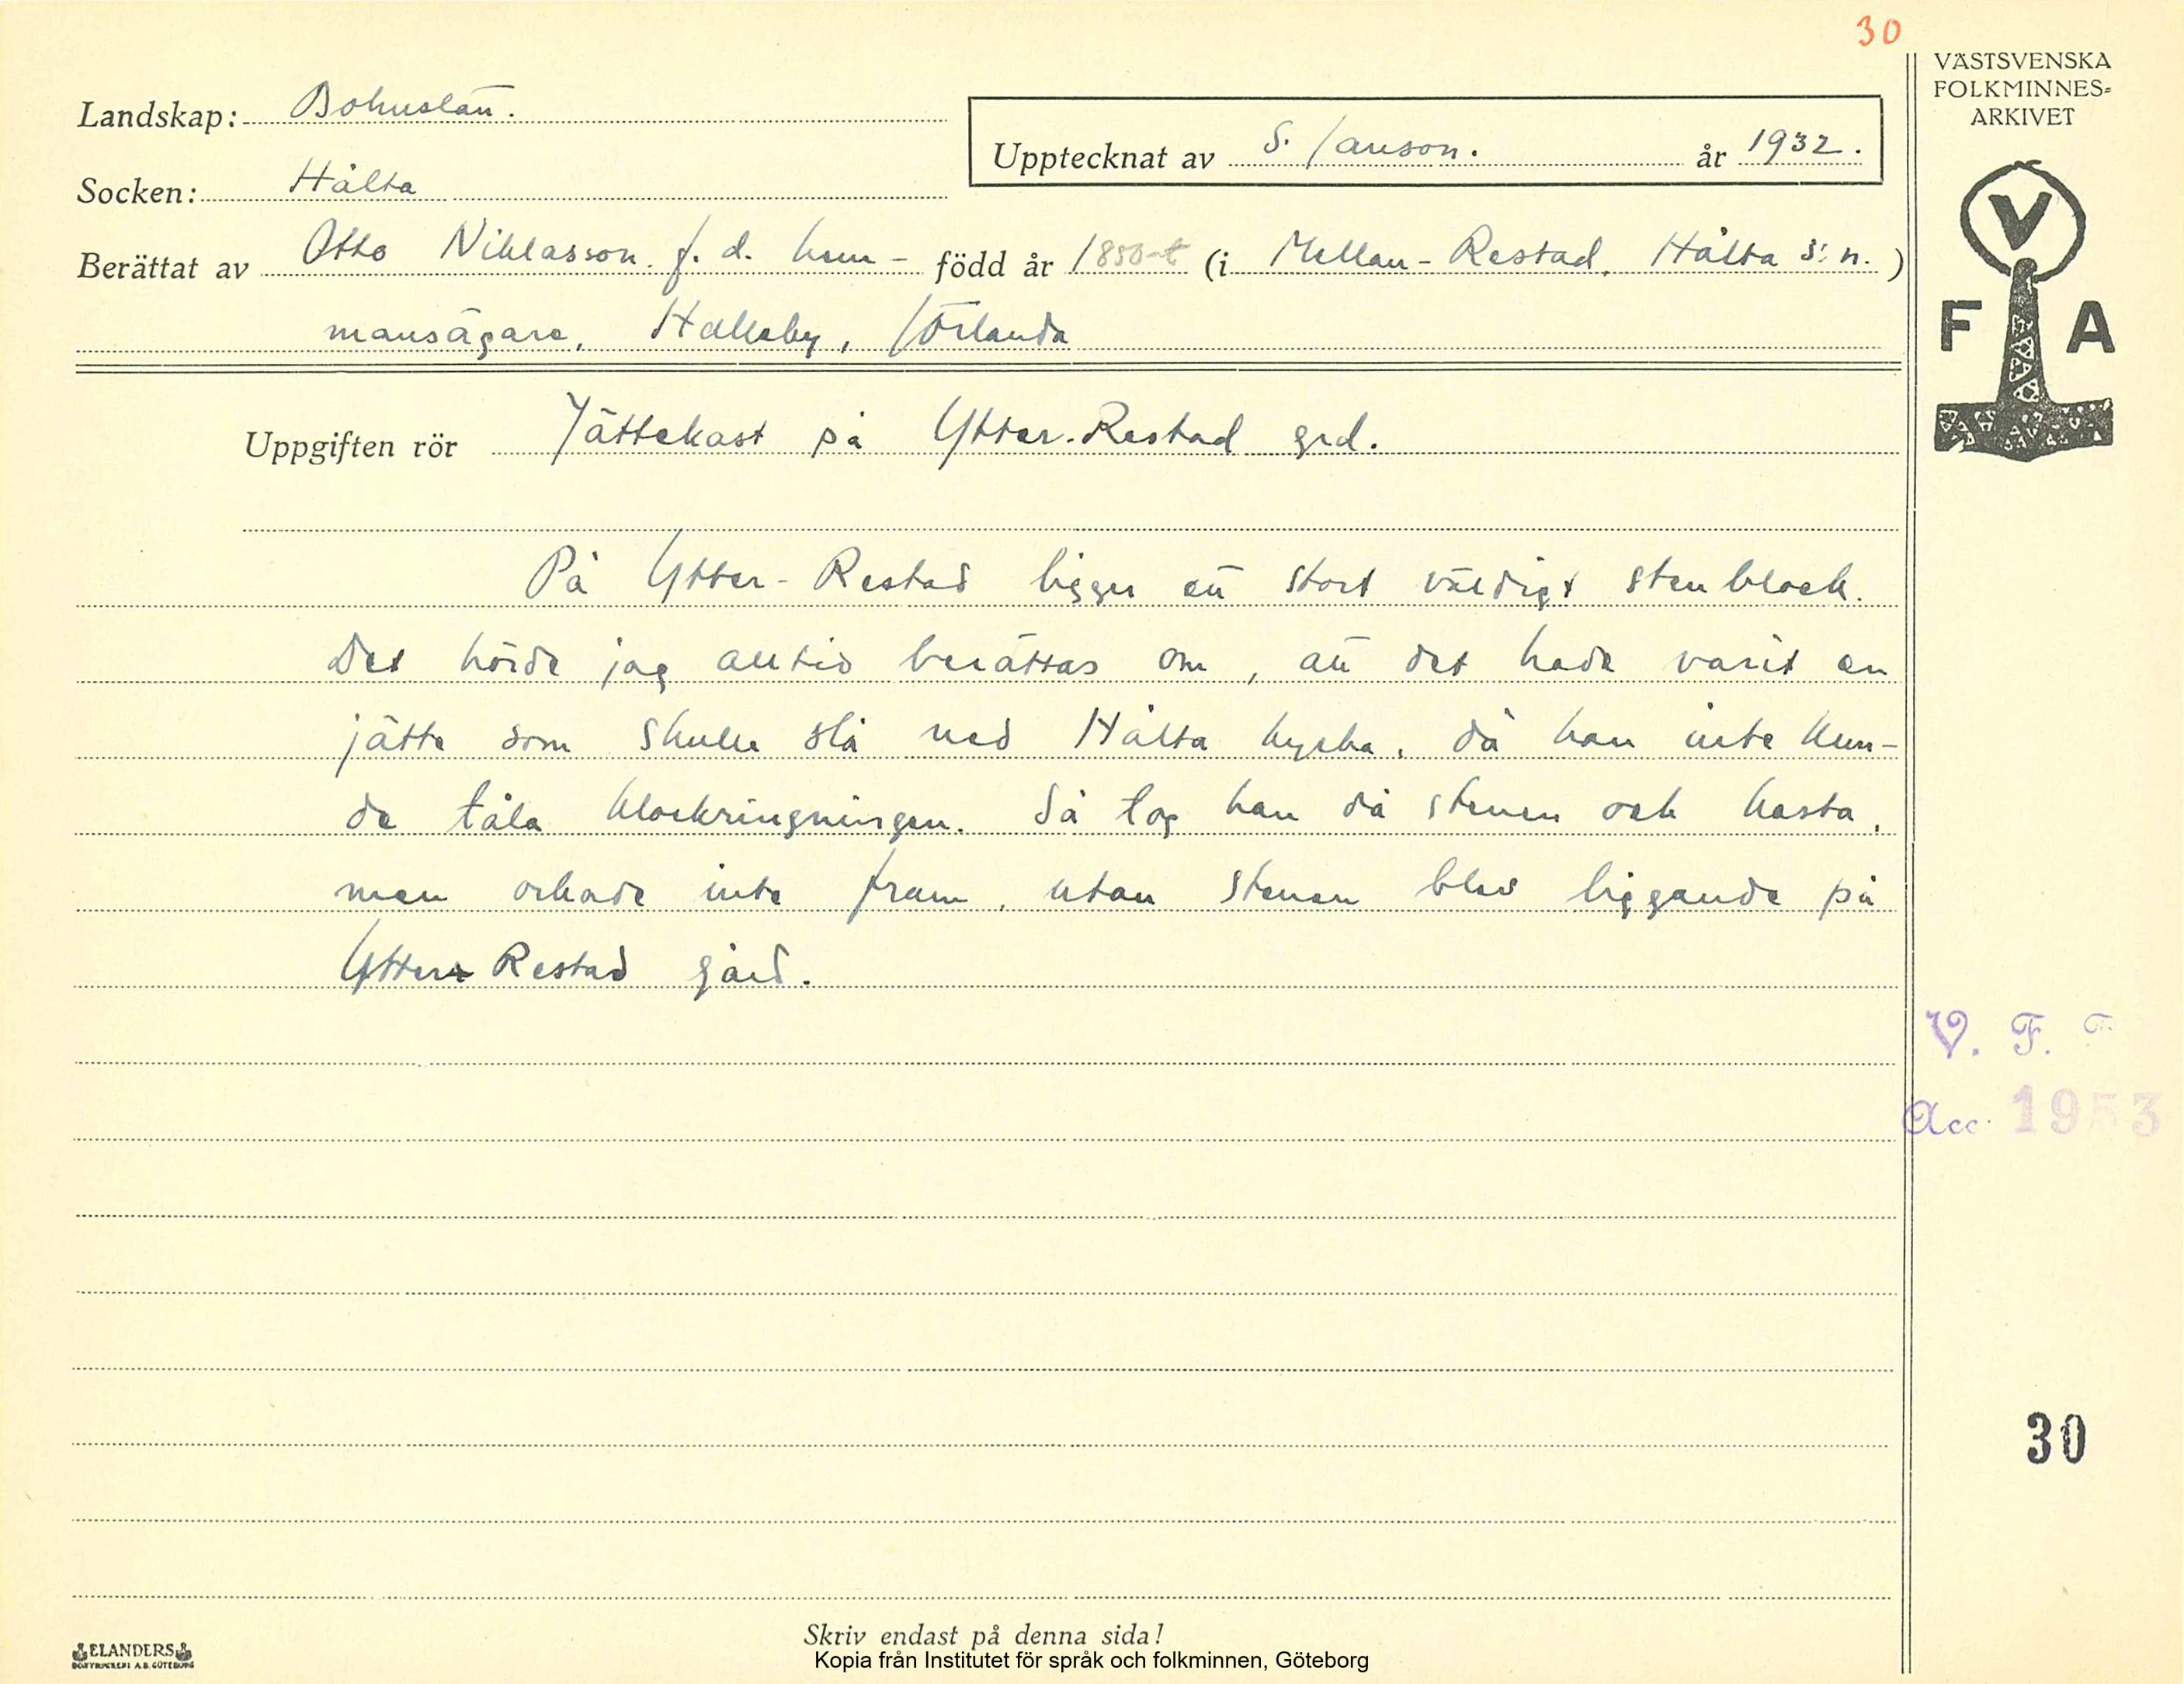 30
VÄSTSVENSKA
FOLKMINNES-
ARKIVET
Landskap: Bohuslän.
Upptecknat av S. Janson. år 1932.
Socken: Hålta
Berättat av Otto Niklasson. f. d. hem- född år 1850-t (i Mellan-Restad, Hålta s:n.)
mansägare, Hålleby, Jörlanda
V
F A
Uppgiften rör Jättekast på Ytter-Restad grd.
På Ytter-Restad ligger ett stort väldigt stenblock.
Det hörde jag alltid berättas om, att det hade varit en
jätte som skulle slå ned Hålta kyrka, då han inte kun-
de tåla klockringningen. Så tog han då stenen och kasta,
men orkade inte fram, utan stenen blev liggande på
Ytter Restad gård.
V. F. F
Acc. 1953
30
Skriv endast på denna sida!
ELANDERS
BOKTRYCKERI A.B. GÖTEBORG
Kopia från Institutet för språk och folkminnen, Göteborg